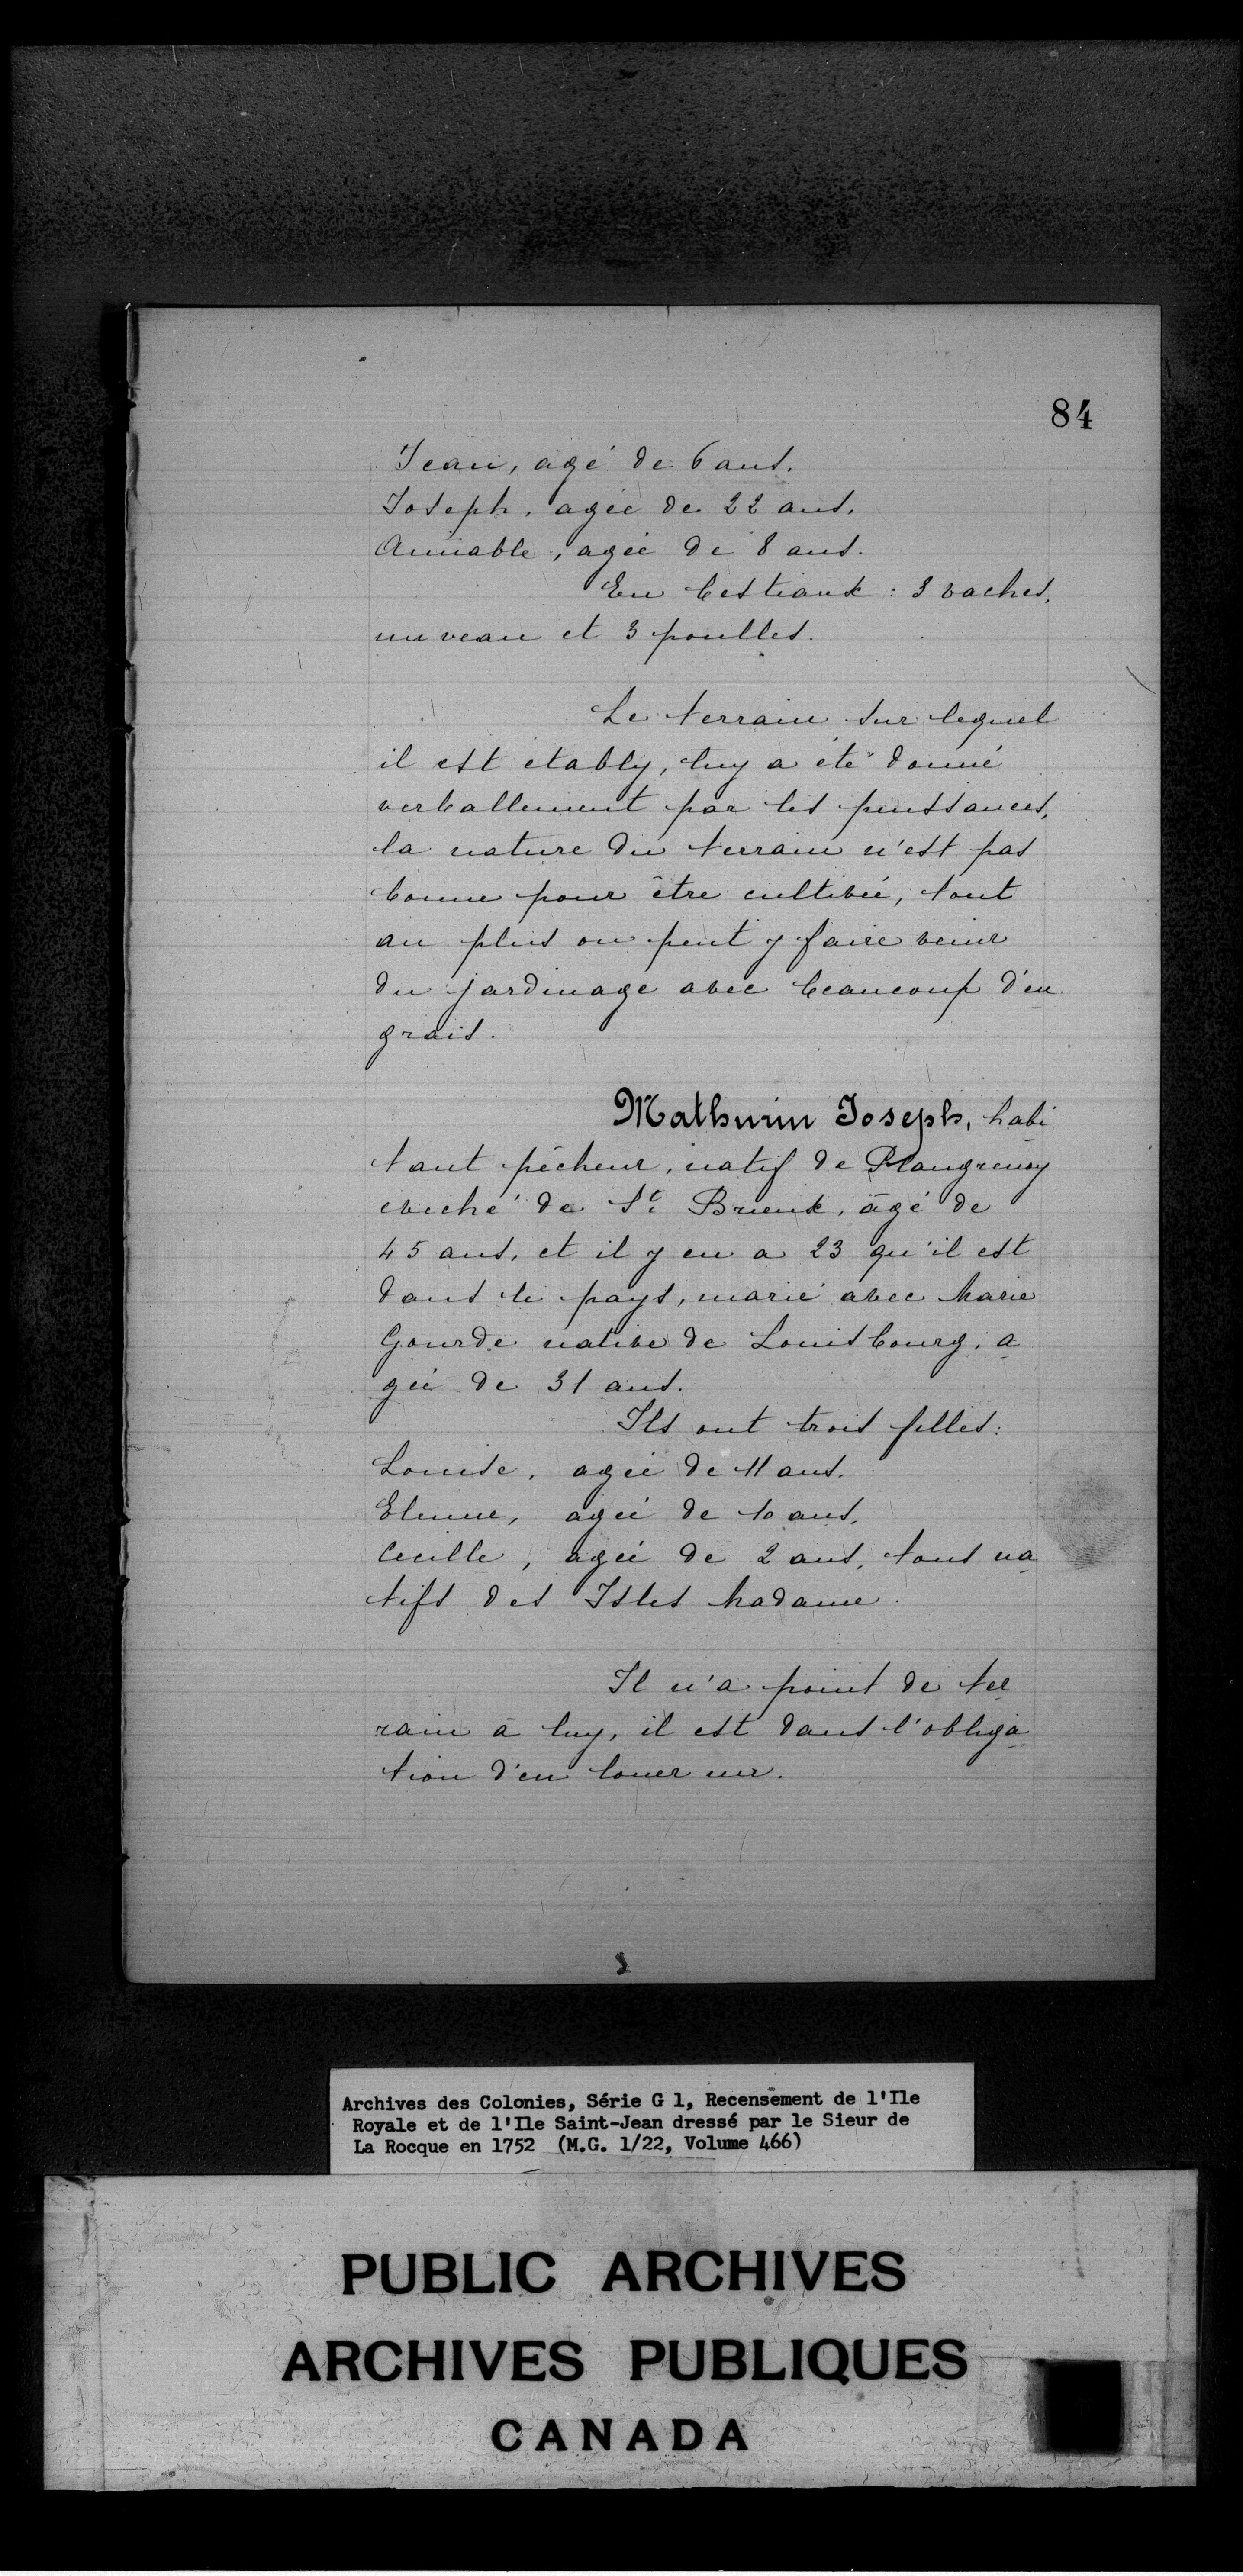 84
Jean, agé de 6 ans.
Joseph, agée de 22 ans.
Amable, agée de 8 ans.
En bestiaux : 3 vaches,
un veau et 3 poulles.
Le terrain sur lequel
il est etably, luy a été donné
verballement par les puissances,
la nature du terrain n'est pas
bonne pour être cultivée, tout
au plus on peut y faire venir
du jardinage avec beaucoup d'en
grais.
Mathurin Joseph, habi
tant pêcheur, natif de Plangrenoy
eveché de St Brieux, âgé de
45 ans, et il y en a 23 qu'il est
dans le pays, marié avec Marie
Gourde native de Louisbourg, a
gée de 31 ans.
Ils ont trois filles:
Louise, agée de 11 ans.
Etienne, agée de 10 ans.
Cecille, agée de 2 ans, tous na
tifs des Isles Madame.
Il n'a point de ter
rain à luy, il est dans l'obliga
tion d'en louer un.
Archives des Colonies, Série G 1, Recensement de l'Ile
Royale et de l'Ile Saint-Jean dressé par le Sieur de
La Rocque en 1752 (M.G. 1/22, Volume 466)
PUBLIC ARCHIVES
ARCHIVES PUBLIQUES
CANADA